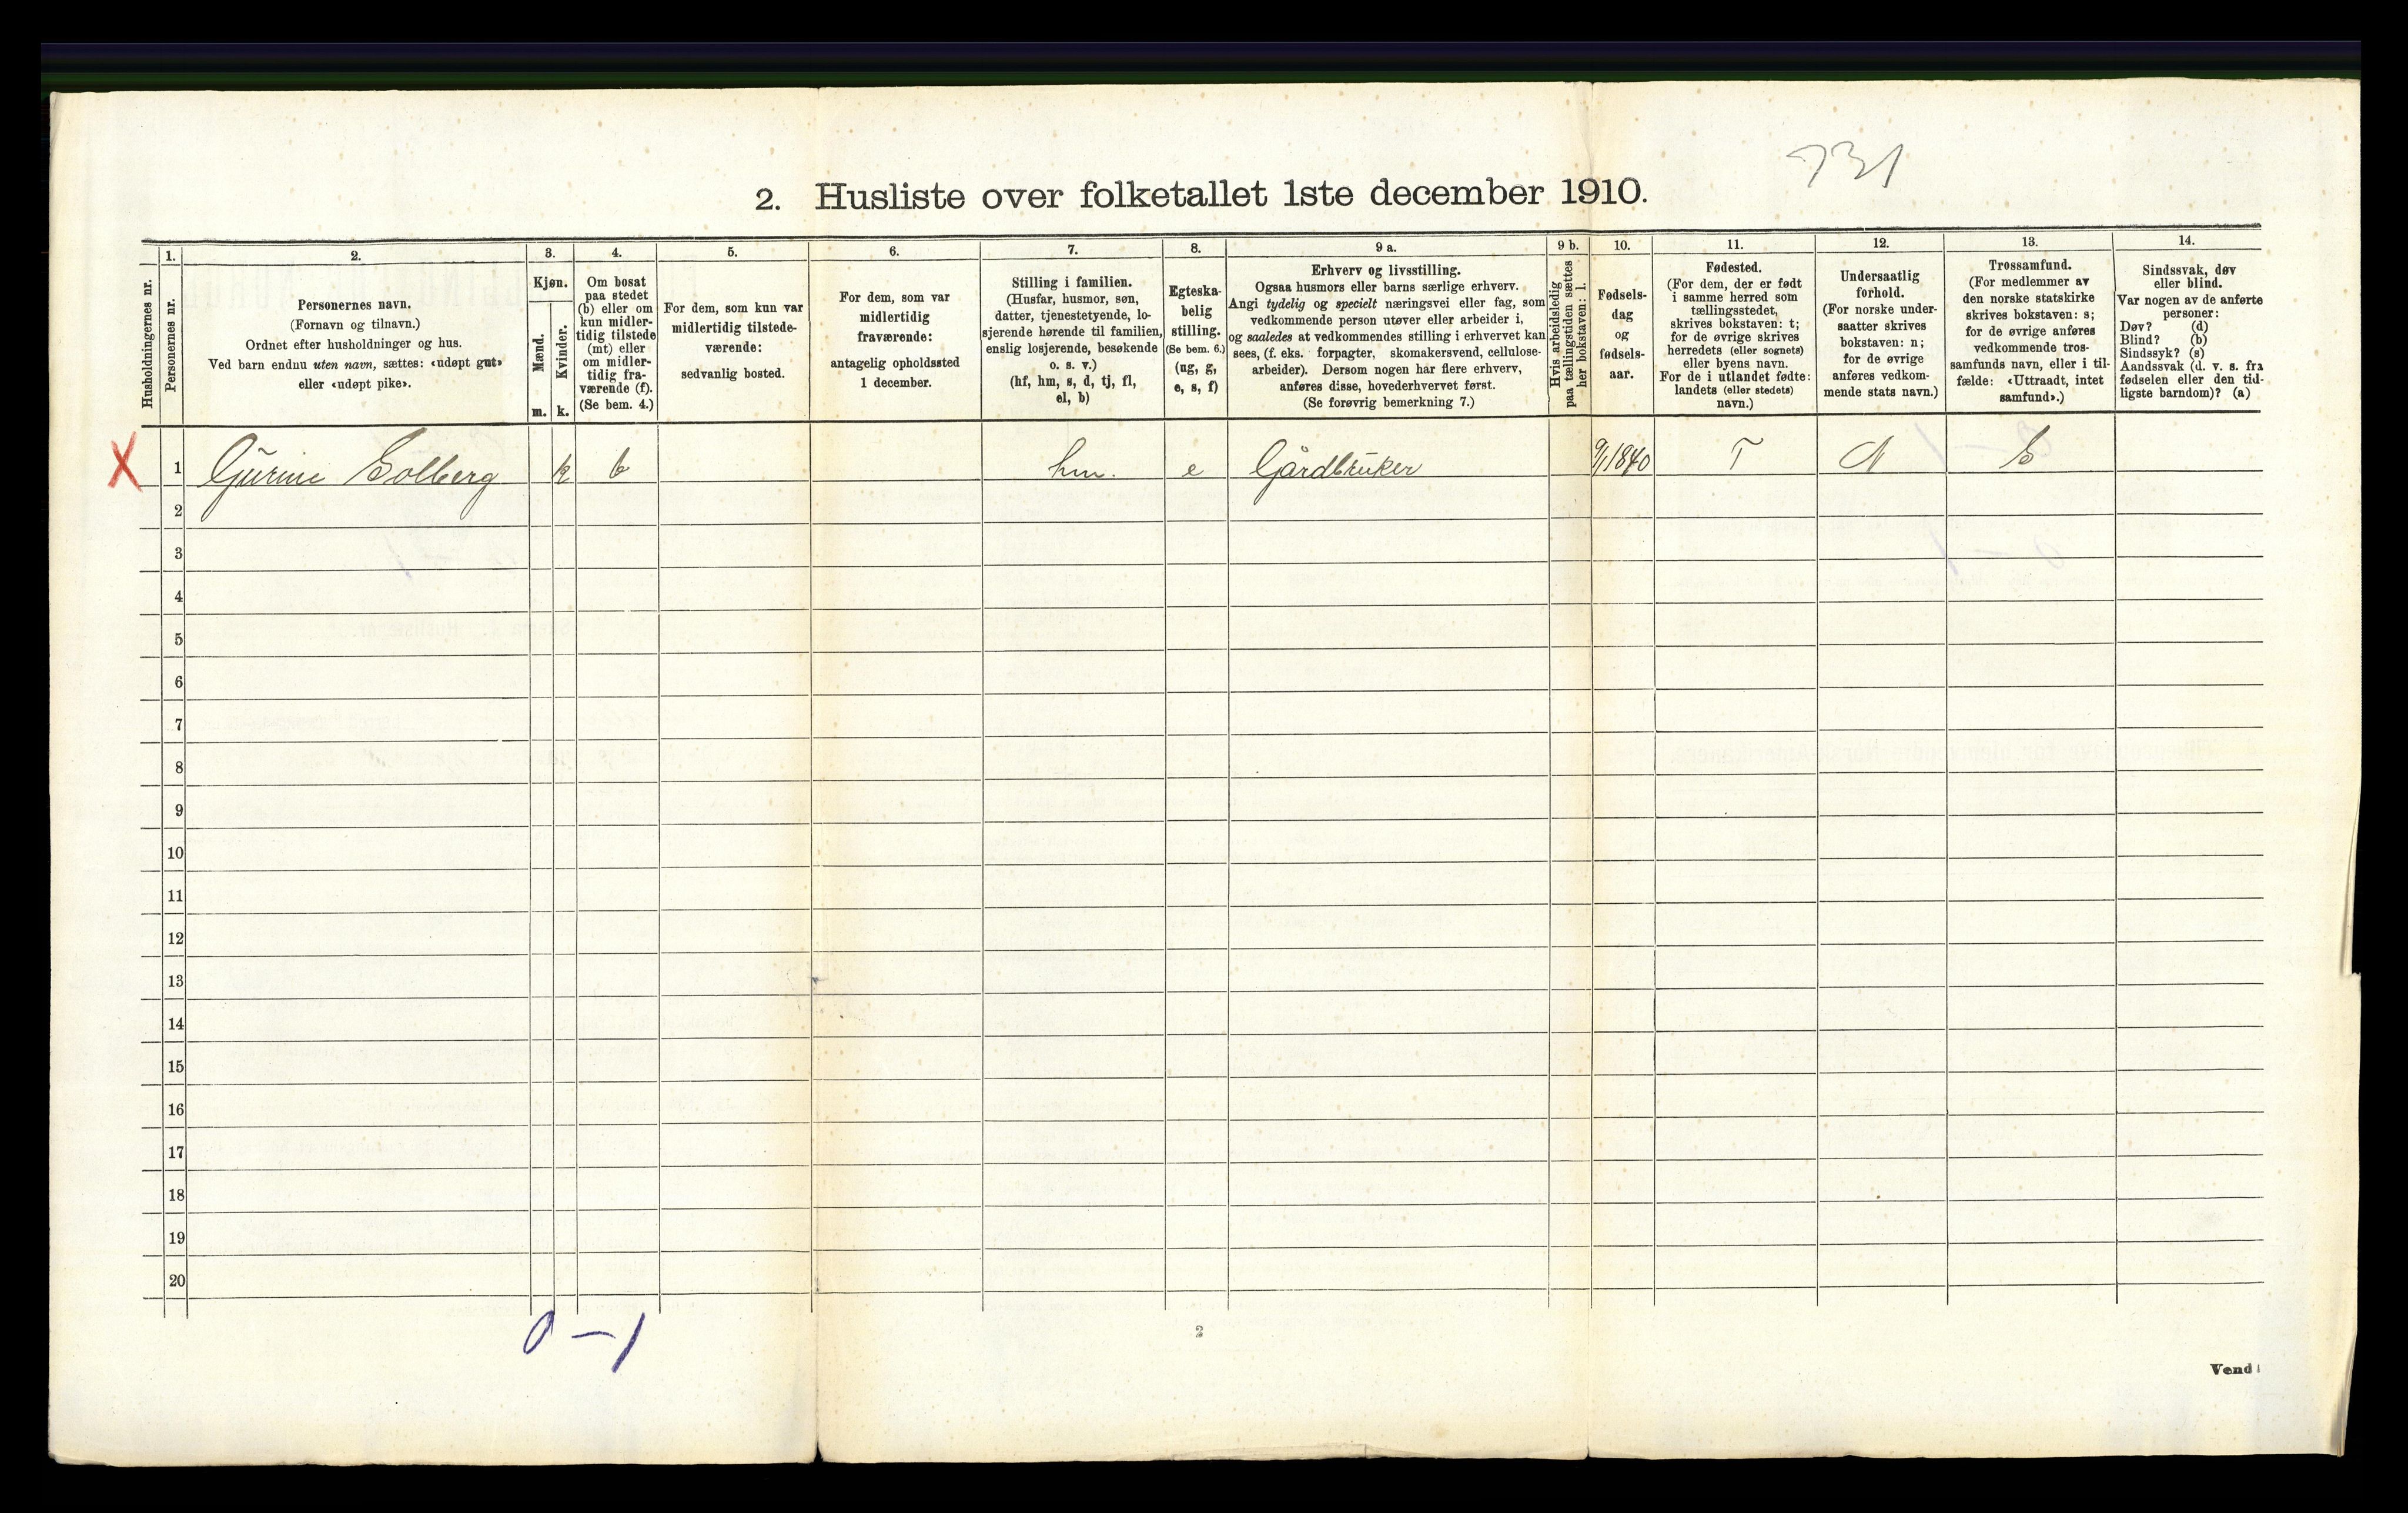 731
2. Husliste over folketallet 1ste december 1910.
Husholdningernes nr.
1.
Personernes nr.
2.
Personernes navn.
(Fornavn og tilnavn.)
Ordnet efter husholdninger og hus.
Ved barn endnu uten navn, sættes: «udøpt gut»
eller «udøpt pike».
3.
Kjøn.
Mænd.
m.
Kvinder.
k.
4.
Om bosat
paa stedet
(b) eller om
kun midler-
tidig tilstede
(mt) eller
om midler-
tidig fra-
værende (f).
(Se bem. 4.)
5.
For dem, som kun var
midlertidig tilstede-
værende:
sedvanlig bosted.
6.
For dem, som var
midlertidig
fraværende:
antagelig opholdssted
1 december.
7.
Stilling i familien.
(Husfar, husmor, søn,
datter, tjenestetyende, lo-
sjerende hørende til familien,
enslig losjerende, besøkende
o. s. v.)
(hf, hm, s, d, tj, fl,
el, b)
8.
Egteska-
belig
stilling.
(Se bem. 6.)
(ug, g,
e, s, f)
9 a.
Erhverv og livsstilling.
Ogsaa husmors eller barns særlige erhverv.
Angi tydelig og specielt næringsvei eller fag, som
vedkommende person utøver eller arbeider i,
og saaledes at vedkommendes stilling i erhvervet kan
sees, (f. eks. forpagter, skomakersvend, cellulose-
arbeider). Dersom nogen har flere erhverv,
anføres disse, hovederhvervet først.
(Se forøvrig bemerkning 7.)
9 b.
Hvis arbeidsledig
paa tællingstiden sættes
her bokstaven: l.
10.
Fødsels-
dag
og
fødsels-
aar.
11.
Fødested.
(For dem, der er født
i samme herred som
tællingsstedet,
skrives bokstaven: t;
for de øvrige skrives
herredets (eller sognets)
eller byens navn.
For de i utlandet fødte:
landets (eller stedets)
navn.)
12.
Undersaatlig
forhold.
(For norske under-
saatter skrives
bokstaven: n;
for de øvrige
anføres vedkom-
mende stats navn.)
13.
Trossamfund.
(For medlemmer av
den norske statskirke
skrives bokstaven: s;
for de øvrige anføres
vedkommende tros-
samfunds navn, eller i til-
fælde: «Uttraadt, intet
samfund».)
14.
Sindssvak, døv
eller blind.
Var nogen av de anførte
personer:
Døv? (d)
Blind? (b)
Sindssyk? (s)
Aandssvak (d. v. s. fra
fødselen eller den tid-
ligste barndom)? (a)
X 1 Gurine Solberg k b hm. e Gårdbruker 9/1 1840 T N S
2
3
4
5
6
7
8
9
10
11
12
13
14
15
16
17
18
19
20
0 – 1
2
Vend